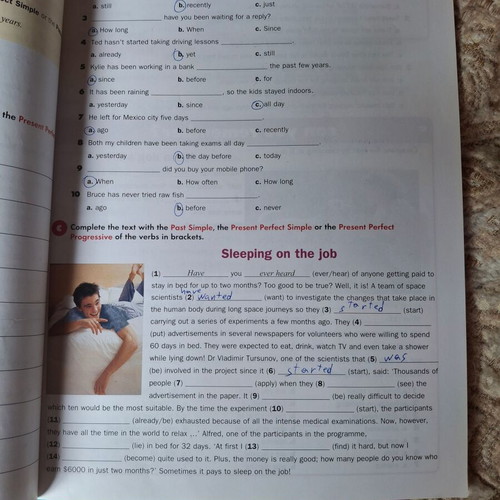 a. still b. recently c. just
3 ____ have you been waiting for a reply?
a. How long b. When c. Since
4 Ted hasn't started taking driving lessons ____.
a. already b. yet c. still
5 Kylie has been working in a bank ____ the past few years.
a. since b. before c. for
6 It has been raining ____, so the kids stayed indoors.
a. yesterday b. since c. all day
7 He left for Mexico city five days ____.
a. ago b. before c. recently
8 Both my children have been taking exams all day ____.
a. yesterday b. the day before c. today
9 ____ did you buy your mobile phone?
a. When b. How often c. How long
10 Bruce has never tried raw fish ____.
a. ago b. before c. never
Complete the text with the Past Simple, the Present Perfect Simple or the Present Perfect
Progressive of the verbs in brackets.
Sleeping on the job
(1) Have you ever heard (ever/hear) of anyone getting paid to
stay in bed for up to two months? Too good to be true? Well, it is! A team of space
scientists (2) have wanted (want) to investigate the changes that take place in
the human body during long space journeys so they (3) started (start)
carrying out a series of experiments a few months ago. They (4) ____
(put) advertisements in several newspapers for volunteers who were willing to spend
60 days in bed. They were expected to eat, drink, watch TV and even take a shower
while lying down! Dr Vladimir Tursunov, one of the scientists that (5) was
(be) involved in the project since it (6) started (start), said: 'Thousands of
people (7) ____ (apply) when they (8) ____ (see) the
advertisement in the paper. It (9) ____ (be) really difficult to decide
which ten would be the most suitable. By the time the experiment (10) ____ (start), the participants
(11) ____ (already/be) exhausted because of all the intense medical examinations. Now, however,
they have all the time in the world to relax ...' Alfred, one of the participants in the programme,
(12) ____ (lie) in bed for 32 days. 'At first I (13) ____ (find) it hard, but now I
(14) ____ (become) quite used to it. Plus, the money is really good; how many people do you know who
earn $6000 in just two months?' Sometimes it pays to sleep on the job!
years.
the Present